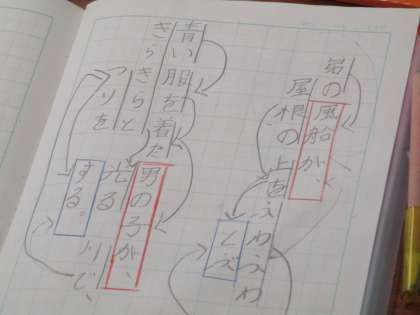 弟の風船が、
屋根の上をふわふわ
とぶ
青い服を着た男の子が、
きらきらと光る川で、
つりをする。